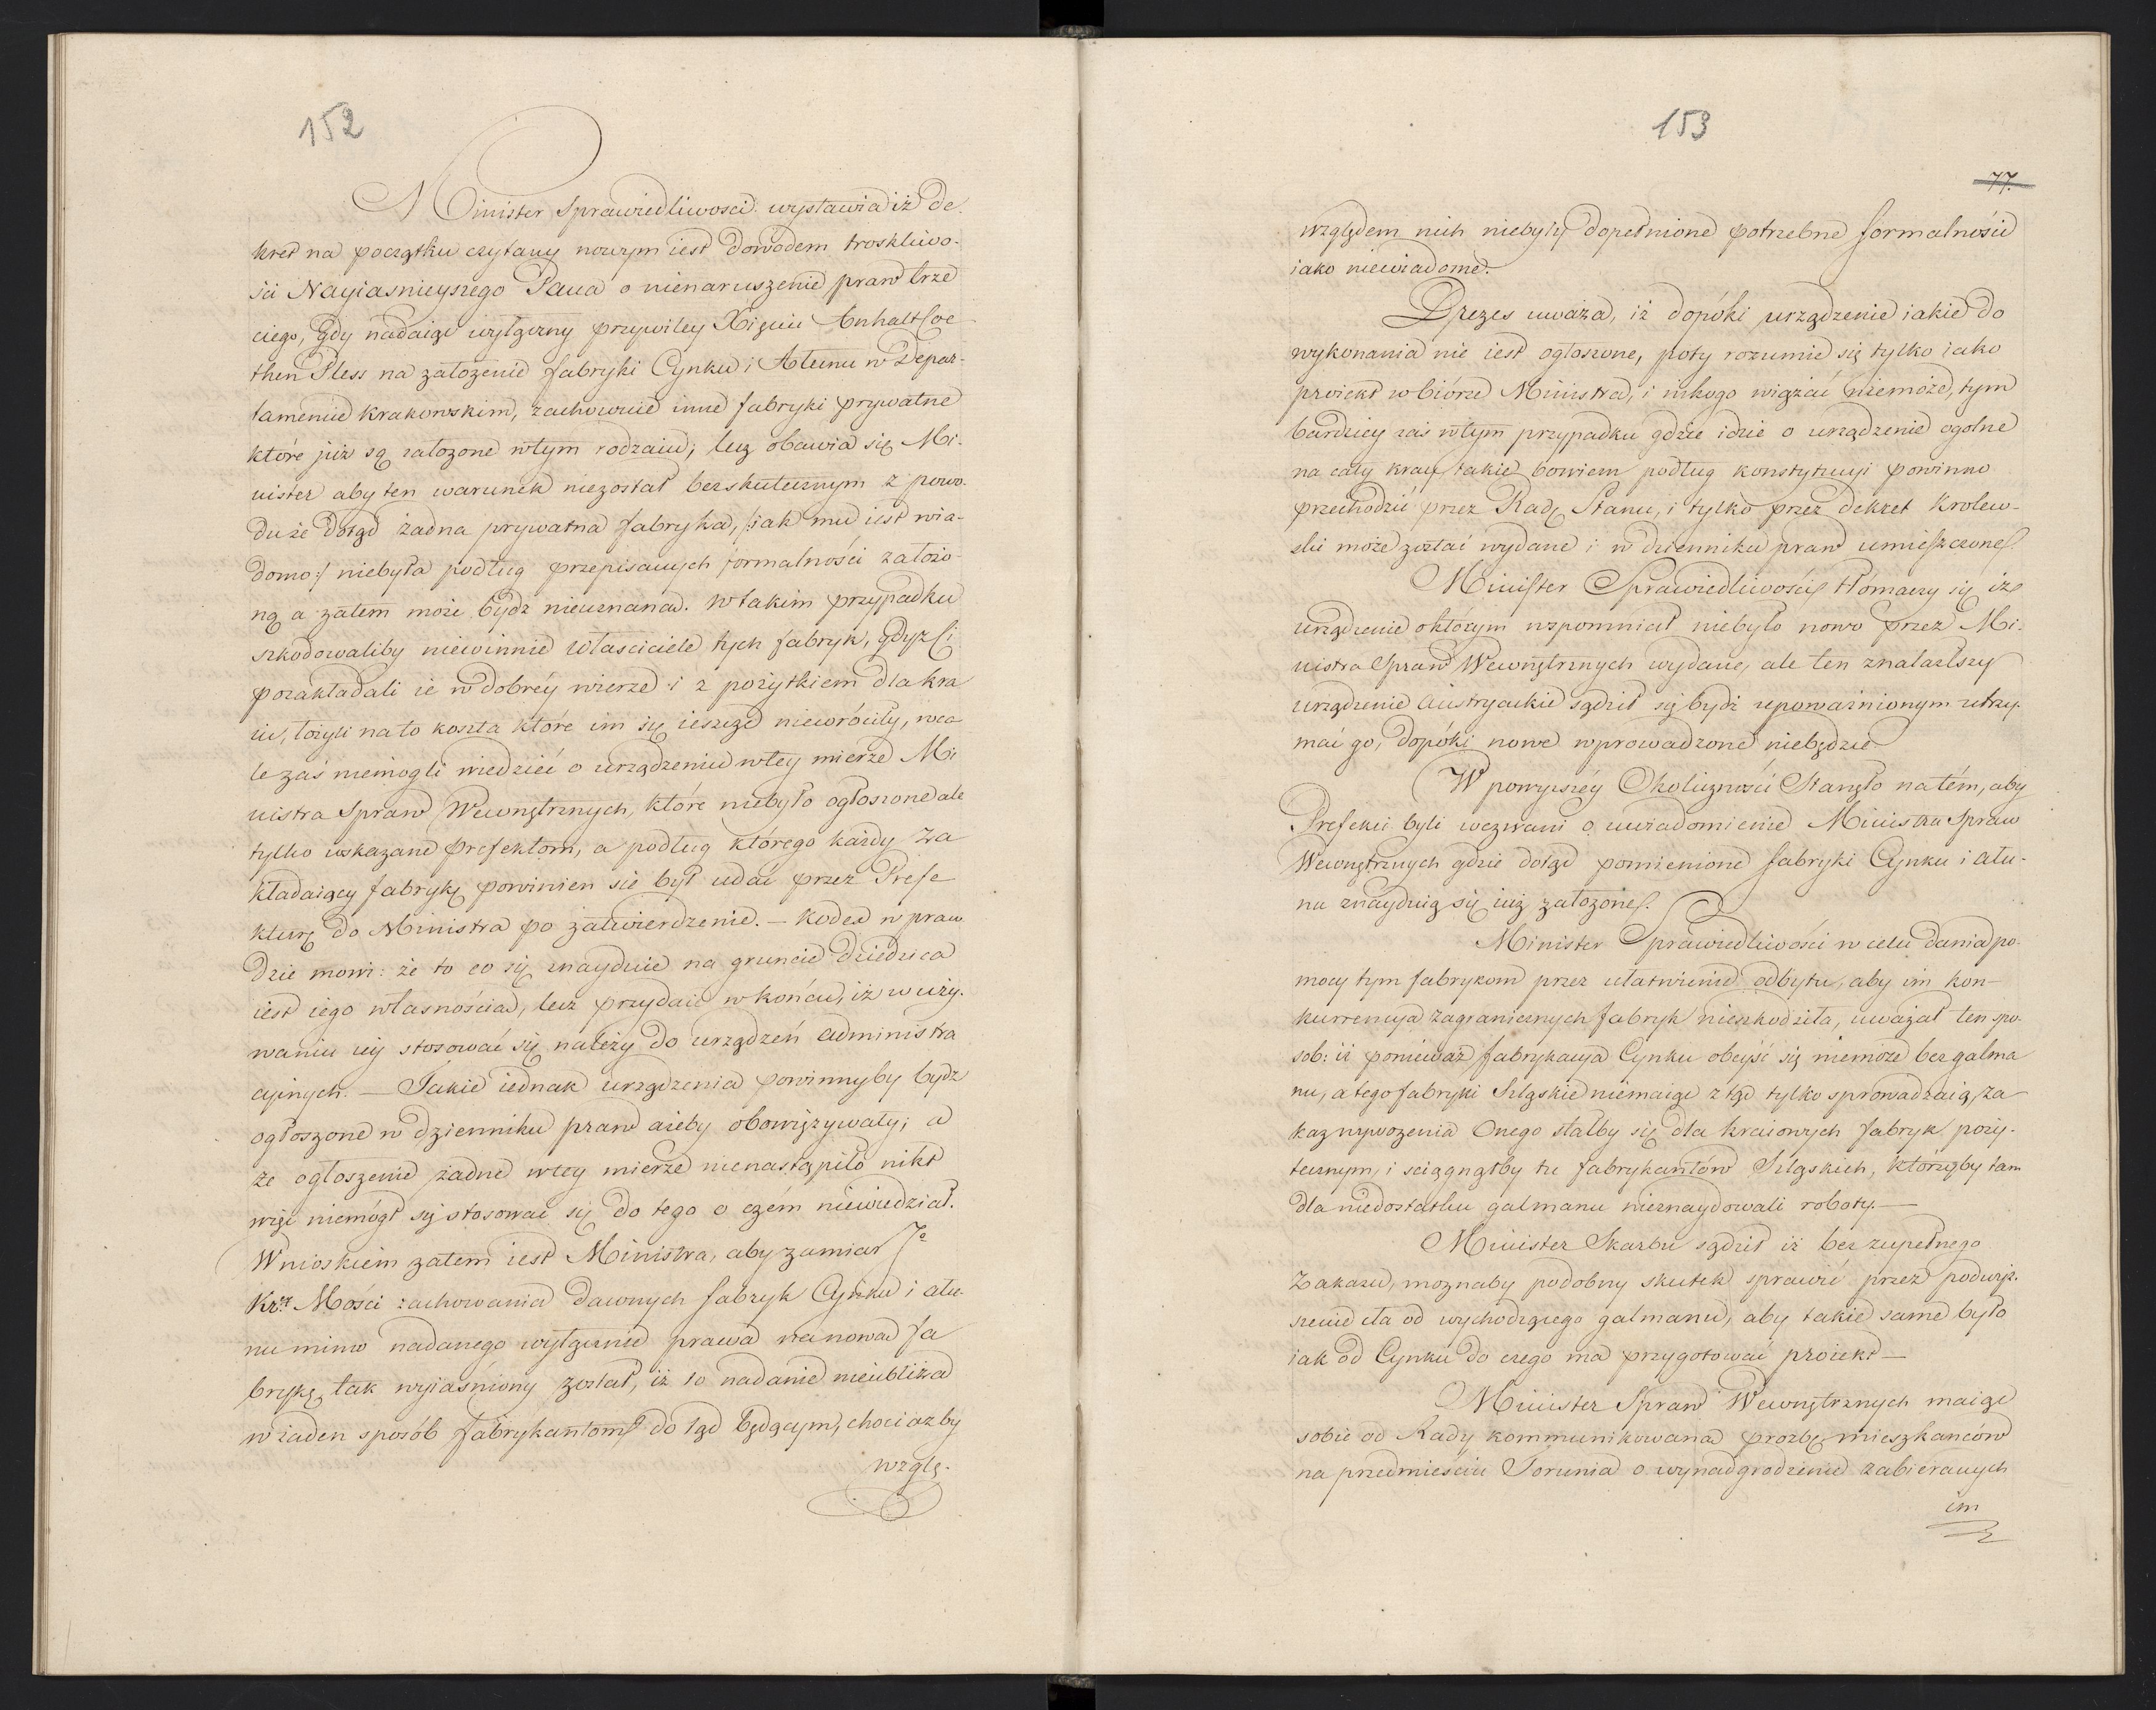 152
Minister Sprawiedliwosci wystawia iż de
kret na początku czytany nowym iest dowodem troskliwo-
ści Nayiasnieyszego Pana o nienaruszenie praw trze
ciego, gdy nadaiąc wyłączny przywiley Xięciu Anhalt Coe
then Pless na założenie fabryki Cynku i Ałunu w Depar-
tamencie Krakowskim, zachowuie inne fabryki prywatne
które już są założone w tym rodzaiu; lecz obawia się Mi-
nister aby ten warunek niezostał bezskutecznym z powo-
du że dotąd żadna prywatna fabryka, /:iak mu iest wia-
domo:/ niebyła podług przepisanych formalności założo-
ną a zatem może bydź nieuznana. W takim przypadku
szkodowaliby niewinnie właściciele tych fabryk, gdyż ci
pozakładali ie w dobréy wierze i z pożytkiem dla kra
iu, łożyli na to koszta które im się ieszcze niewróciły, wca
le zaś niemogli wiedzieć o urządzeniu w tey mierze Mi
nistra Spraw Wewnętrznych, które niebyło ogłoszone ale
tylko wskazane Prefektom, a podług którego każdy za
kładaiący fabrykę powinien się był udać przez Prefe
kturę do Ministra po zatwierdzenie. — Kodex w praw
dzie mowi: że to co się znayduie na gruncie dziedzica
iest iego własnościa, lecz przydaie w końcu, iż w uży-
waniu iey stosować się należy do urządzeń administra
cyinych. — Takie iednak urządzenia powinnyby bydź
ogłoszone w dzienniku praw ażeby obowięzywały; a
że ogłoszenie żadne w tey mierze nienastąpiło nikt
więc niemógł się stosować się do tego o czém niewiedział.
Wnioskiem zatem iest Ministra, aby zamiar Jo
Kr:ey Mości zachowania dawnych fabryk Cynku i ału-
nu mimo nadanego wyłącznie prawa na nową fa
brykę, tak wyiaśniony został, iż to nadanie nieubliża
w żaden sposób fabrykantom do tąd będącym, chociażby
wzglę-
153
77.
względem nich niebyły dopełnione potrzebne formalności
iako niewiadome.
Prezes uważa, iż dopóki urządzenie iakie do
wykonania nie iest ogłoszone, poty rozumie się tylko iako
proiekt w biórze Ministra, i nikogo wiązać niemoże, tym
bardziey zaś w tym przypadku gdzie idzie o urządzenie ogolne
na cały kray, takie bowiem podług konstytucyi powinno
przechodzić przez Radę Stanu, i tylko przez dekret Krolew-
ski może zostać wydane i w dzienniku praw umieszczone.
Minister Sprawiedliwości tłómaczy się iż
urządzenie o którym wspomniał niebyło nowo przez Mi-
nistra Spraw Wewnętrznych wydane, ale ten znalazłszy
urządzenie Austryackie sądził się bydź upoważnionym utrzy-
mać go, dopóki nowe wprowadzone niebędzie
W powyższéy Okoliczności Stanęło na tém, aby
Prefekci byli wezwani o uwiadomienie Ministra Spraw
Wewnętrznych gdzie dotąd pomienione fabryki Cynku i ału-
nu znayduią się iuż założone.
Minister Sprawiedliwości w celu dania po-
mocy tym fabrykom przez ułatwienie odbytu, aby im kon-
kurrencya zagranicznych fabryk nieszkodziła, uważał ten spo-
sob: iż ponieważ fabrykacya Cynku obeyść się niemoże bez galma
nu, a tego fabryki Szląskie niemaiąc z tąd tylko sprowadzaią, za
kaz wywozenia Onego stałby się dla kraiowych fabryk poży-
tecznym, i sciągnąłby tu fabrykantów Szląskich, którzyby tam
dla niedostatku galmanu nieznaydowali roboty. —
Minister Skarbu sądził iż bez zupełnego
Zakazu, możnaby podobny skutek sprawić przez podwyż-
szenie cła od wychodzącego galmanu, aby takie same było
iak od Cynku do czego ma przygotować proiekt —
Minister Spraw Wewnętrznych maiąc
sobie od Rady kommunikowaną prozbę mieszkańców
na przedmieściu Torunia o wynadgrodzenie zabieranych
im